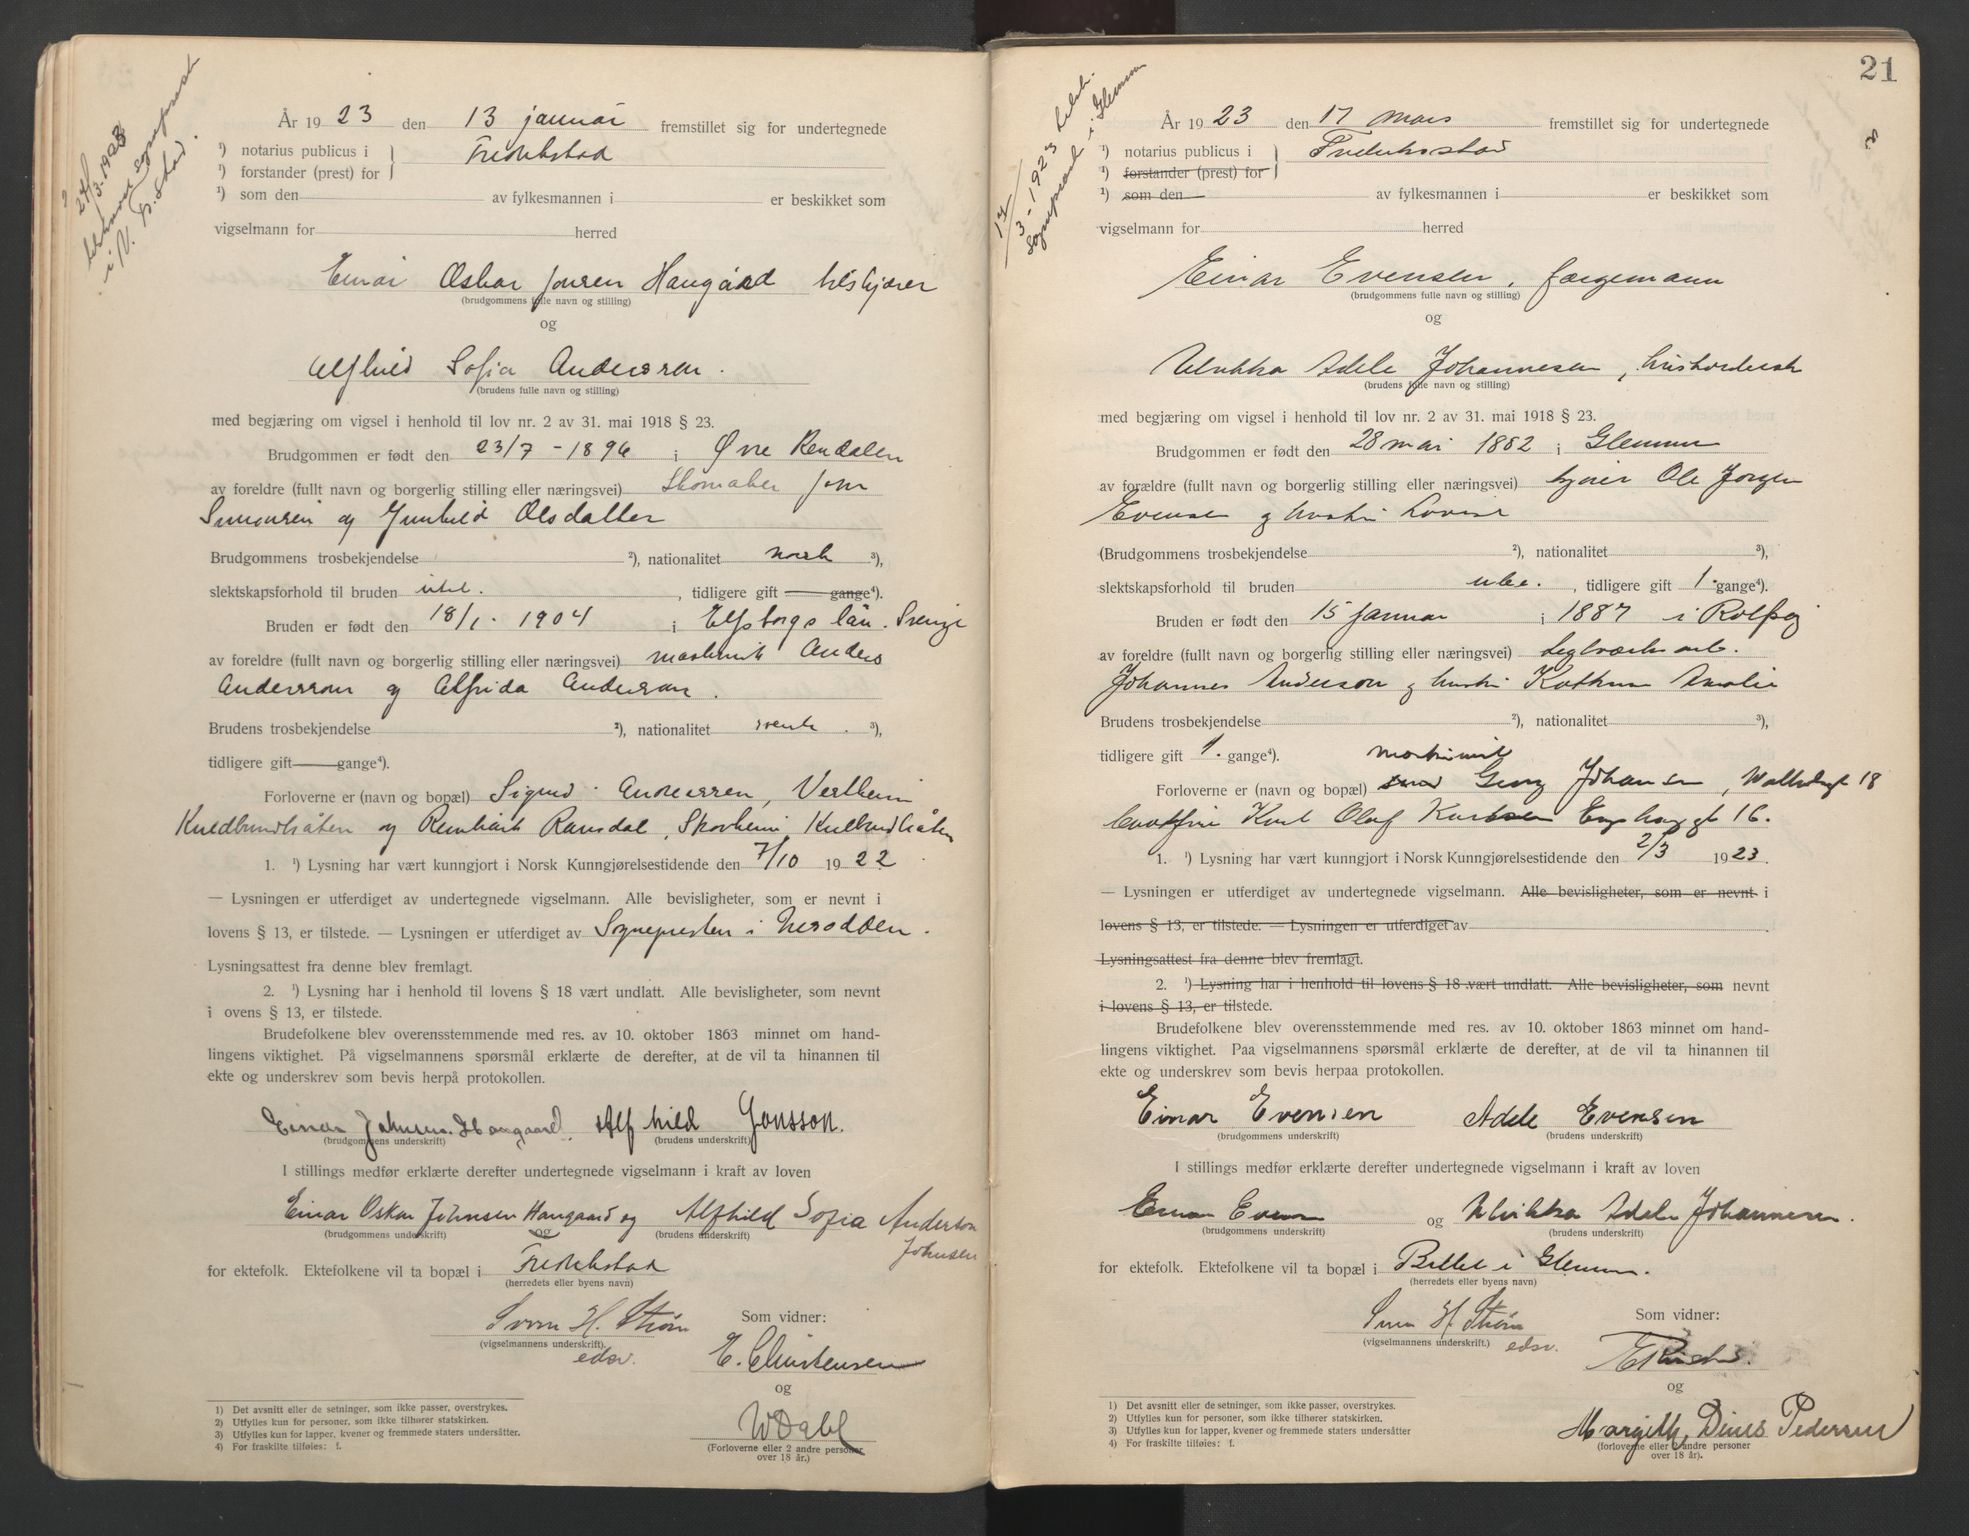 27/3-1923
sogneprest
i V. Fr.stad.
År 1923 den 13 januar fremstillet sig for undertegnede
¹) notarius publicus i } Fredrikstad
¹) forstander (prest) for
¹) som den av fylkesmannen i er beskikket som
vigselmann for herred
Einar Oskar Jonsen Haugård
(brudgommens fulle navn og stilling)
og
Alfhild Sofia Anderssen.
(brudens fulle navn og stilling)
med begjæring om vigsel i henhold til lov nr. 2 av 31. mai 1918 § 23.
Brudgommen er født den 23/7 - 1896 i Øvre Rendalen
av foreldre (fullt navn og borgerlig stilling eller næringsvei) Skomaker Jon
Simonsen og Gunhild Olsdatter
Brudgommens trosbekjendelse ²), nationalitet norsk ³),
slektskapsforhold til bruden ube. , tidligere gift gange⁴).
Bruden er født den 18/1. 1904 i Elfsborgs län. Sverige
av foreldre (fullt navn og borgerlig stilling eller næringsvei) maskinist Anders
Andersson og Alfrida Andersson.
Brudens trosbekjendelse ²), nationalitet svensk. ³),
tidligere gift gange⁴).
Forloverne er (navn og bopæl) Sigurd Anderssen, Vestheim
og Reinhart Ramsdal, Skovheim,
1. ¹) Lysning har vært kunngjort i Norsk Kunngjørelsestidende den 7/10 1922
— Lysningen er utferdiget av undertegnede vigselmann. Alle bevisligheter, som er nevnt i
lovens § 13, er tilstede. — Lysningen er utferdiget av Sognepresten i Nesodden.
Lysningsattest fra denne blev fremlagt.
2. ¹) Lysning har i henhold til lovens § 18 vært undlatt. Alle bevisligheter, som nevnt
i ovens § 13, er tilstede.
Brudefolkene blev overensstemmende med res. av 10. oktober 1863 minnet om hand-
lingens viktighet. På vigselmannens spørsmål erklærte de derefter, at de vil ta hinannen til
ekte og underskrev som bevis herpå protokollen.
Einar Johnsen Haugaard. Alfhild Jonsson.
(brudgommens underskrift) (brudens underskrift)
I stillings medfør erklærte derefter undertegnede vigselmann i kraft av loven
Einar Oskar Johnsen Haugaard og Alfhild Sofia Anderson
Johnsen
(brudgommens underskrift) og (brudens underskrift)
for ektefolk. Ektefolkene vil ta bopæl i Fredrikstad
(herredets eller byens navn)
Svem H. Strøm Som vidner:
(vigselmannens underskrift).
edsv. E. Christensen
og
W Dahl
(Forloverne eller 2 andre personer
over 18 år.)
1) Det avsnitt eller de setninger, som ikke passer, overstrykes.
2) Utfylles kun for personer, som ikke tilhører statskirken.
3) Utfylles kun for lapper, kvener og fremmede staters undersåtter.
4) For fraskilte tilføies: f.
21
17/3-1923
Sogneprest i Glemmen
År 1923 den 17 mars fremstillet sig for undertegnede
¹) notarius publicus i } Fredrikstad
¹) forstander (prest) for
¹) som den av fylkesmannen i er beskikket som
vigselmann for herred
Einar Evensen, færgemann
(brudgommens fulle navn og stilling)
og
Ulrikka Adele Johannesen,
(brudens fulle navn og stilling)
med begjæring om vigsel i henhold til lov nr. 2 av 31. mai 1918 § 23.
Brudgommen er født den 28 mai 1882 i Glemmen
av forældre (fullt navn og borgerlig stilling eller næringsvei) kjører Ole Jørgen
Evensen og hustru Lovise
(Brudgommens trosbekjendelse ²), nationalitet ³),
slektskapsforhold til bruden ube. , tidligere gift 1. gange⁴).
Bruden er født den 15 januar i 1887 i Rolfsøy
av foreldre (fullt navn og borgerlig stilling eller næringsvei) teglverksarb.
Johannes Anderson og hustru Amalie
Brudens trosbekjendelse ²), nationalitet ³),
tidligere gift 1. gange⁴). maskinist
Forloverne er (navn og bopæl) Georg Johansen, 18
Karl Olaf Karlsen 16.
1. ¹) Lysning har vært kunngjort i Norsk Kunngjørelsestidende den 2/3 1923.
— Lysningen er utferdiget av undertegnede vigselmann. Alle bevisligheter, som er nevnt i
lovens § 13, er tilstede. — Lysningen er utferdiget av
Lysningsattest fra denne blev fremlagt.
2. ¹) Lysning har i henhold til lovens § 18 vært undlatt. Alle bevisligheter, som nevnt
i lovens § 13, er tilstede.
Brudefolkene blev overensstemmende med res. av 10. oktober 1863 minnet om hand-
lingens viktighet. Paa vigselmannens spørsmål erklærte de derefter, at de vil ta hinannen til
ekte og underskrev som bevis herpaa protokollen.
Einar Evensen Adele Evensen
(brudgommens underskrift) (brudens underskrift)
I stillings medfør erklærte derefter undertegnede vigselmann i kraft av loven
Einar Evensen og Ulrikka Adele Johannesen.
(brudgommens underskrift) (brudens underskrift)
for ektefolk. Ektefolkene vil ta bopæl i i Glemmen.
(herredets eller byens navn)
Svem H. Strøm Som vidner:
(vigselmannens underskrift.) edsv.
og
Margith Pedersen
(forloverne eller 2 andre personer
over 18 år).
1) Det avsnitt eller de setninger, som ikke passer, overstrykes.
2) Utfylles kun for personer, som ikke tilhører statskirken.
3) Utfylles kun for lapper, kvener og fremmede staters undersåtter
4) For fraskilte tilføies: f.